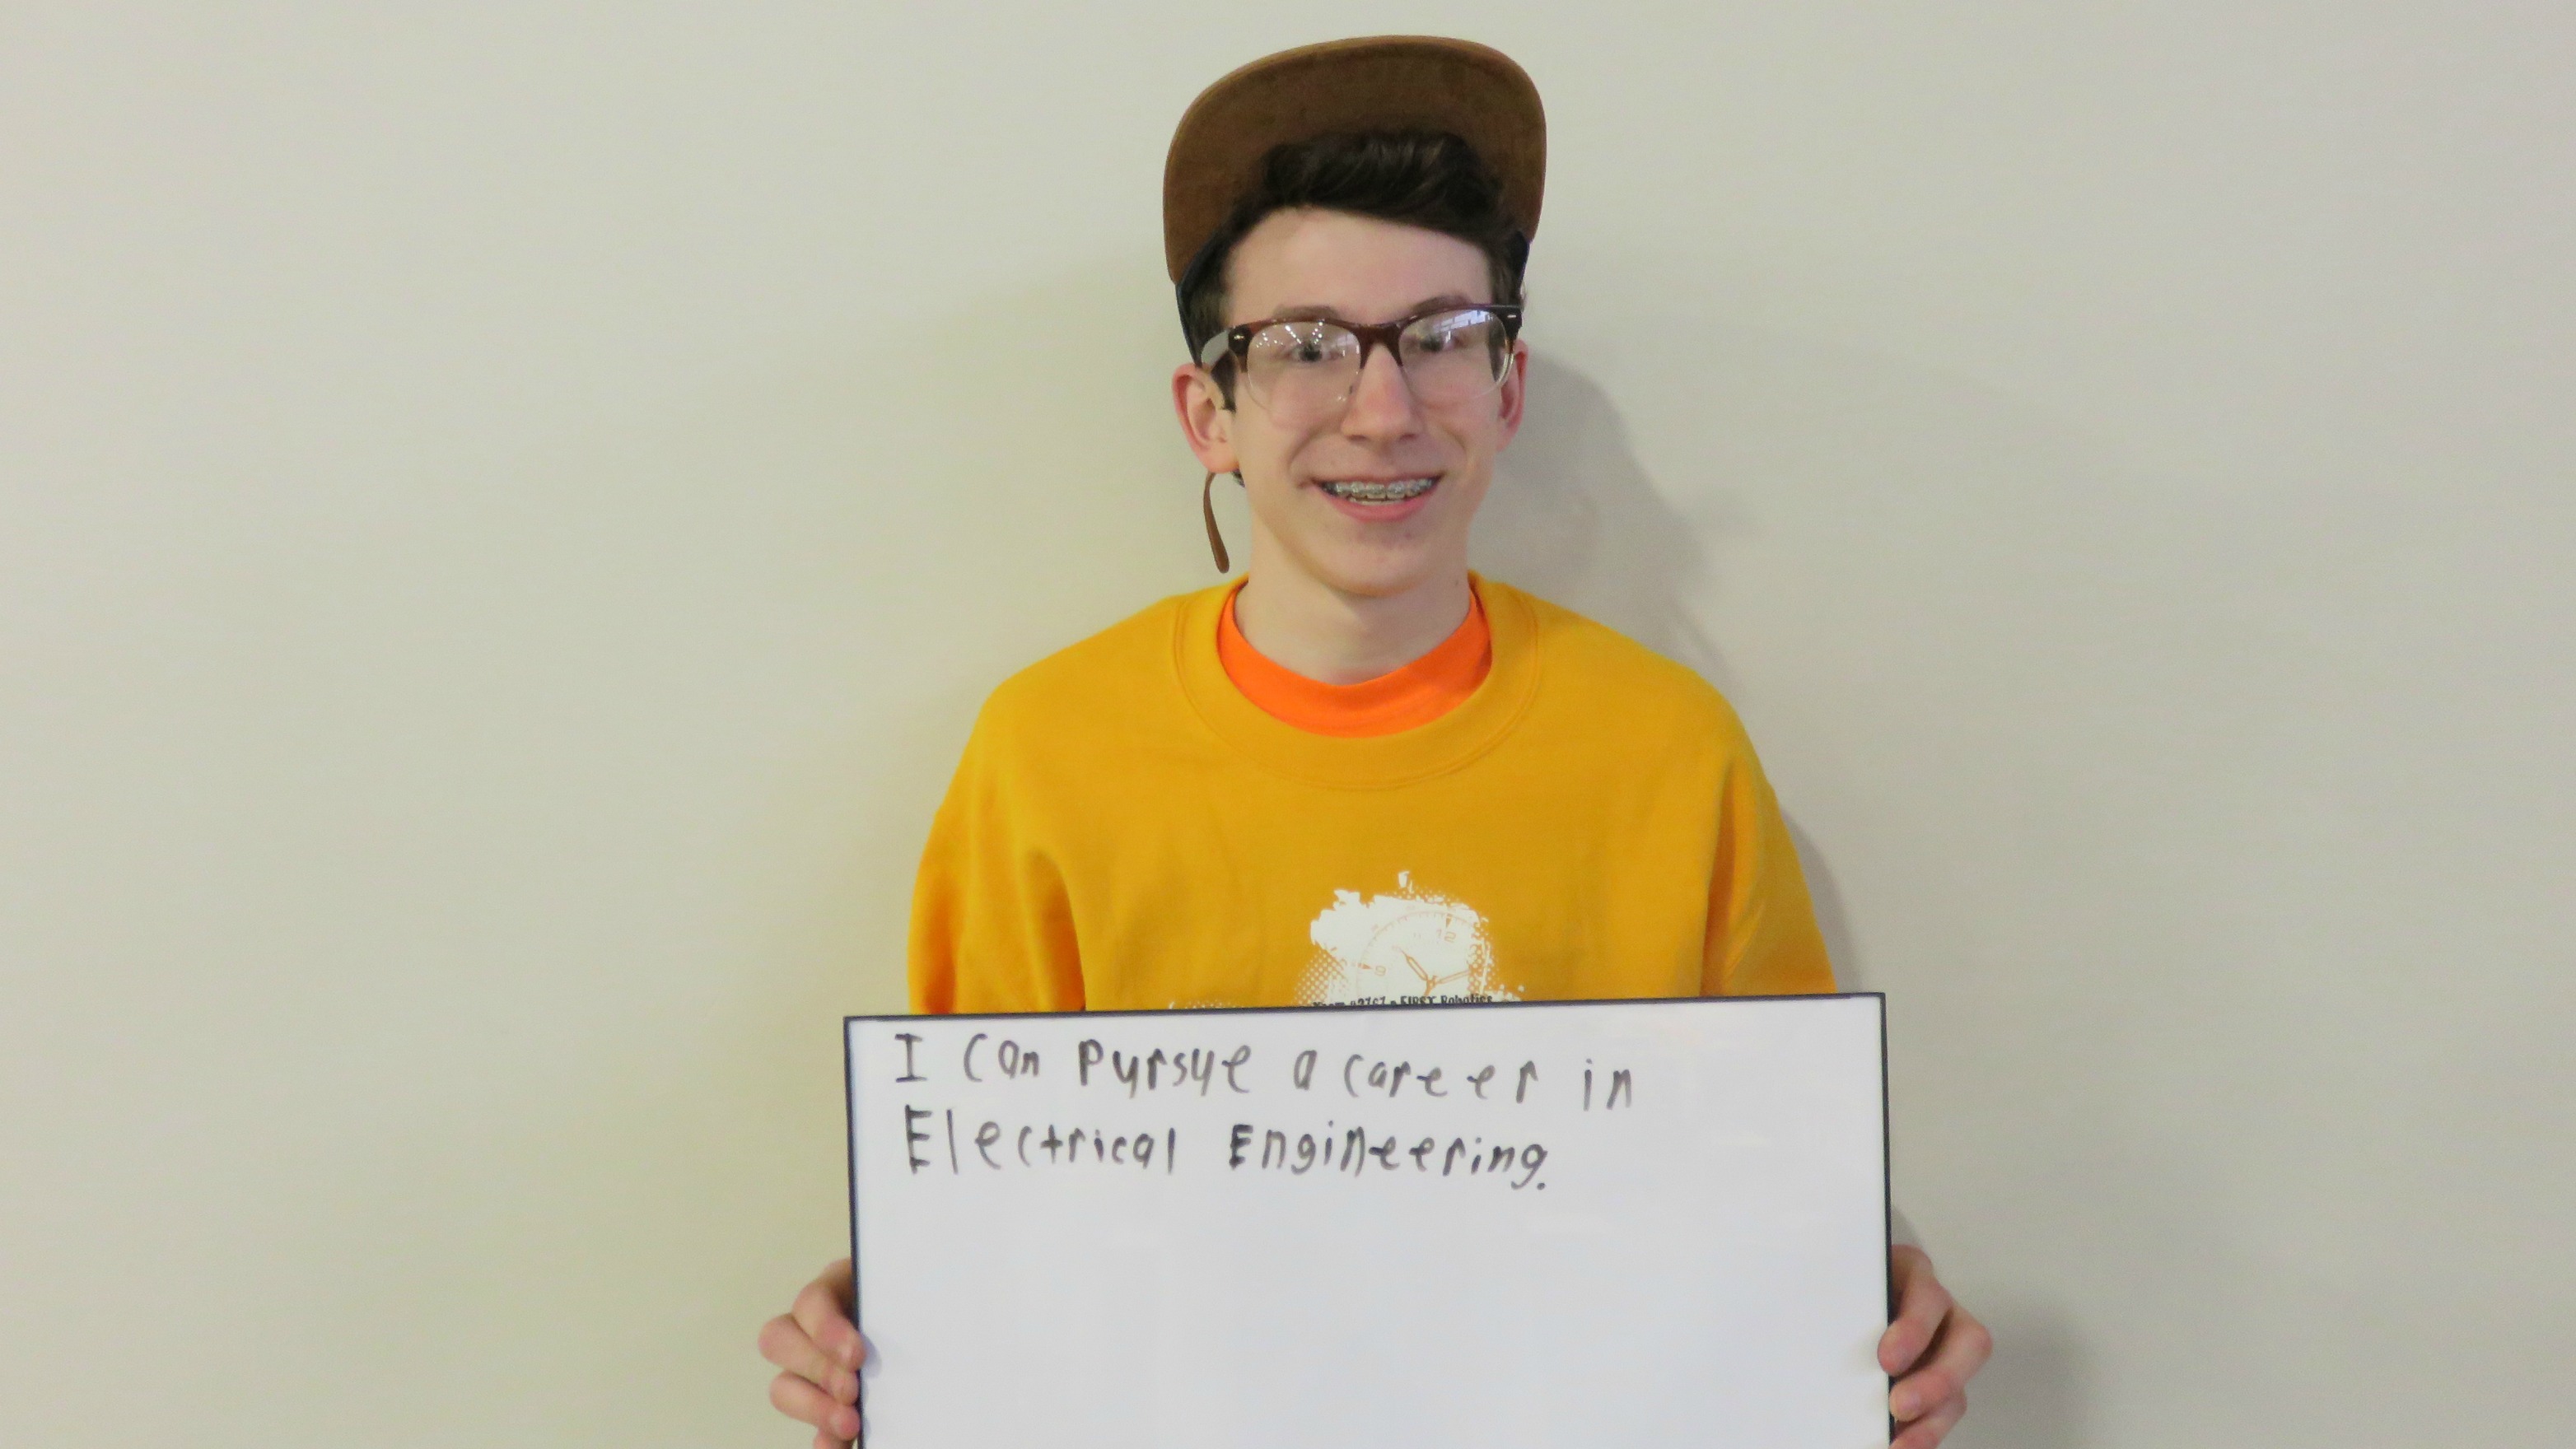 12
9
FIRST Robotics
I can pursue a career in
Electrical Engineering.